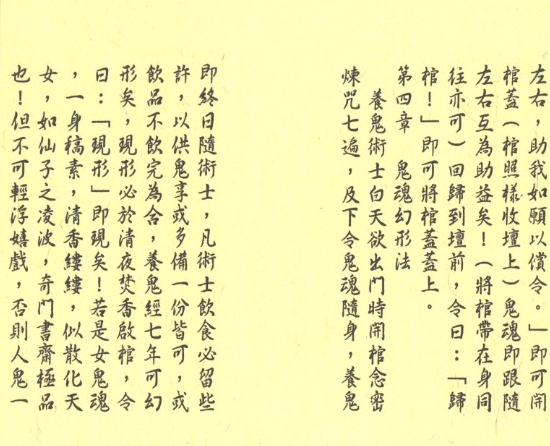 左右，助我如願以償令。」即可開
棺蓋（棺照樣收壇上）鬼魂即跟隨
左右互為助益矣！（將棺帶在身同
往亦可）回歸到壇前，令曰：「歸
棺！」即可將棺蓋蓋上。
第四章　鬼魂幻形法
養鬼術士白天欲出門時開棺念密
煉咒七遍，及下令鬼魂隨身，養鬼
即終日隨術士，凡術士飲食必留些
許，以供鬼享或多備一份皆可，或
飲品不飲完為舍，養鬼經七年可幻
形矣，現形必於清夜焚香啟棺，令
曰：「現形」即現矣！若是女鬼魂
，一身稿素，清香縷縷，似散化天
女，如仙子之凌波，奇門書齋極品
也！但不可輕浮嬉戲，否則人鬼一